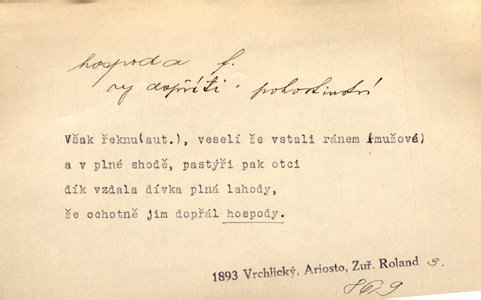 hospoda f.
vy dopříti. pohostinství
Však řeknu(aut.), veselí že vstali ránem (mužové)
a v plné shodě, pastýři pak otci
dík vzdala dívka plná lahody,
že ochotně jim dopřál hospody.
1893 Vrchlický, Ariosto, Zuř. Roland 3.
869